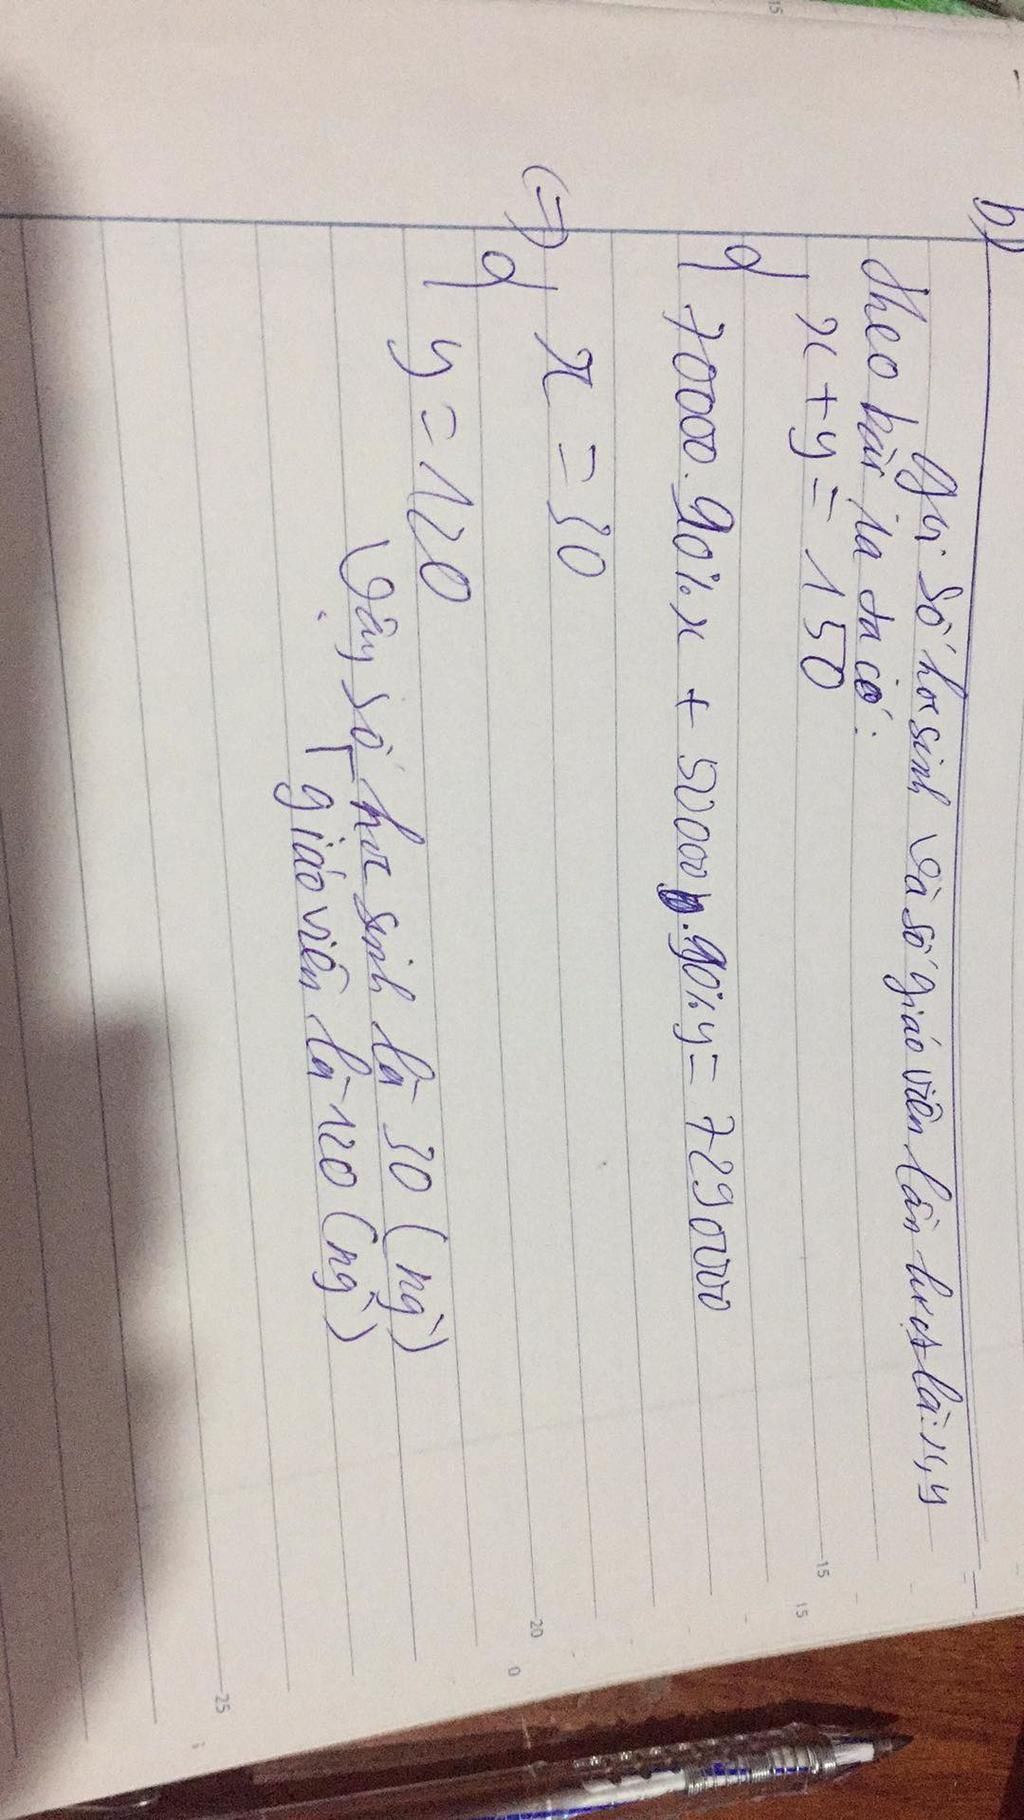 b)
Gọi số học sinh và số giáo viên lần lượt là: x, y
theo bài ra ta có:
x + y = 150
70000. 90% x + 50000 . 90% y = 7290000
(=) x = 30
y = 120
Vậy số học sinh là 30 (ng`)
giáo viên là 120 (ng`)
15
15
20
0
25
15